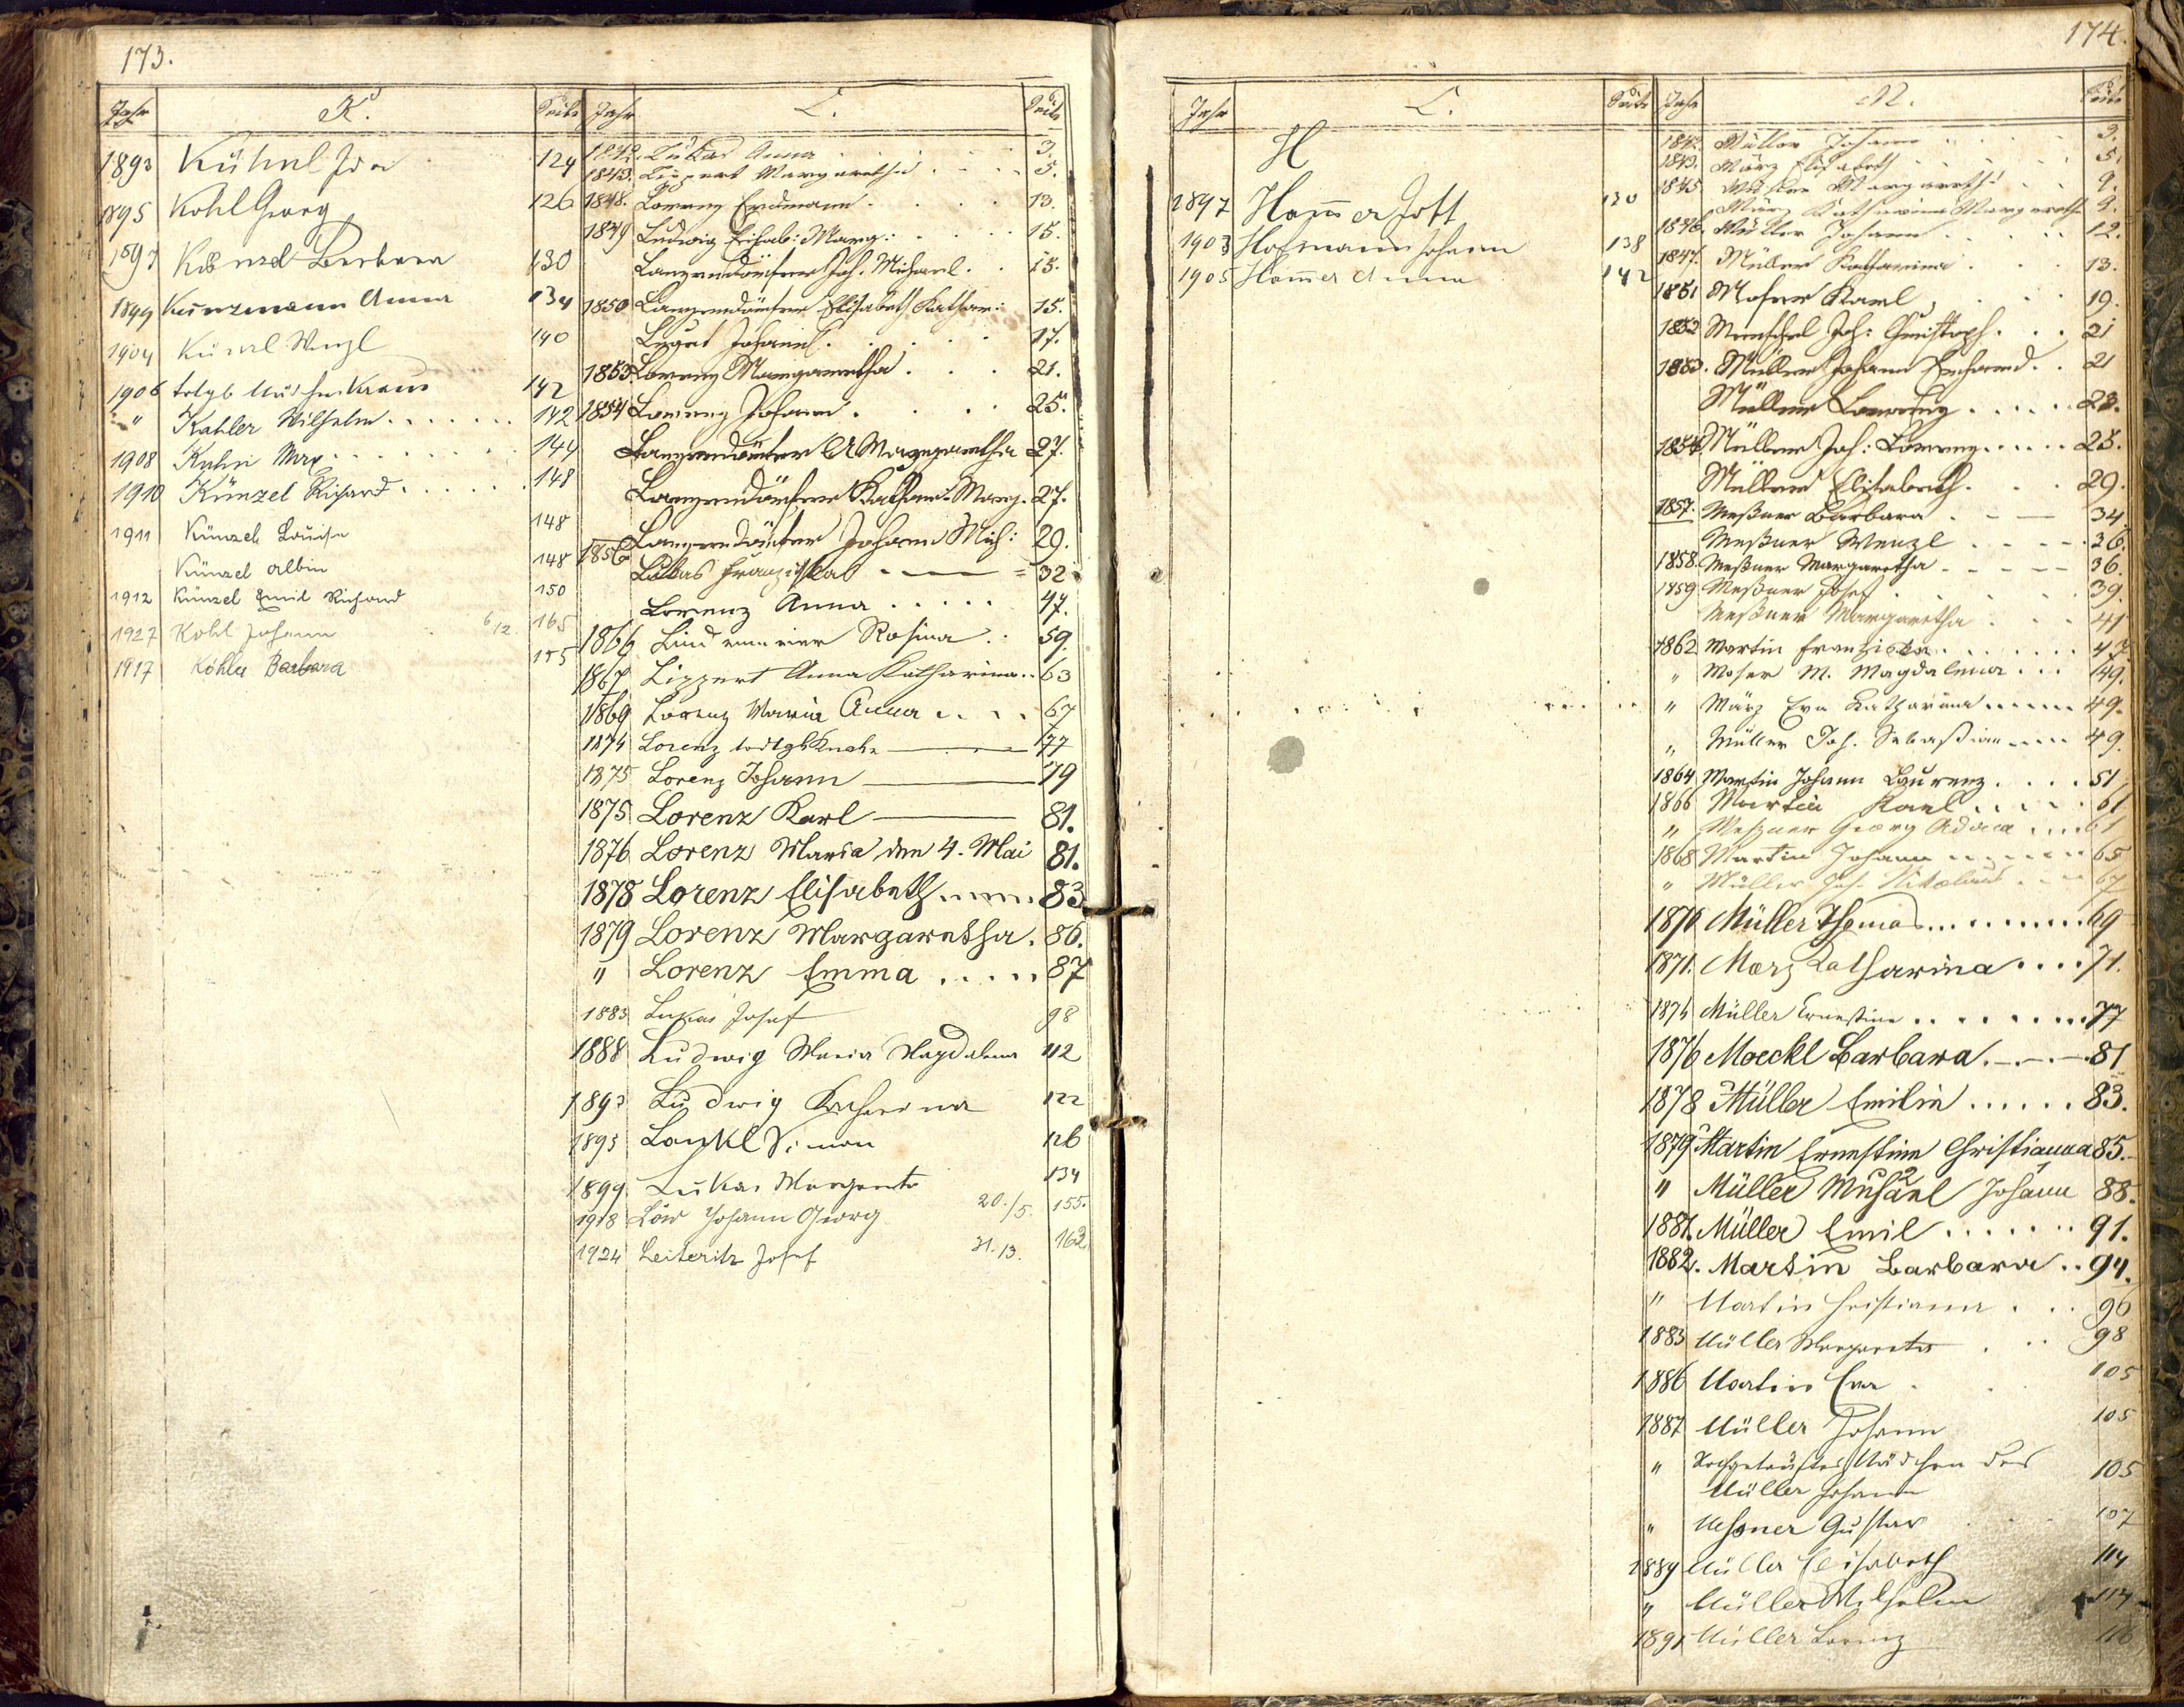 173.
Jahr K. Seite
1893 Kühnl Ida 124
1895 Kohl Georg 126
1897 Künzel Barbara 130
1899 Kunzmann Anna 134
1904 Künzl Wenzl 140
1906 todgb Mädchen Kraus 142
" Kahler Wilhelm 142
1908 Kuhn Max 144
1910 Künzel Richard 148
1911 Künzel Louise 148
Künzel Albin 148
1912 Künzel Emil Richard 150
1927 Kohl Johann 6/12. 165
1917 Köhler Barbara 155
Jahr L. Seite
1842. Lukas Anna 3.
1843. Lippert Margaretha 5.
1848. Lorenz Erdmann 13.
1849 Ludwig Elisab: Marg: 15.
Langendörfer Joh. Michael 15.
1850 Langendörfer Elisabeth Kathar: 15.
Johann 17.
1853 Lorenz Margaretha 21.
1854 Lorenz Johann 25.
Langendörfer A Margaretha 27.
Langendörfer Kathar: Marg. 27.
Langendörfer Johann Mich: 29.
1856 Lukas Franziska 32
Lorenz Anna 47.
1866 Rosina 59.
1867 Lippert Anna Katharina 63
1869 Lorenz Maria Anna 67
1874 Lorenz todtgb Knabe 77
1875 Lorenz Johann 79
1875 Lorenz Karl 81.
1876 Lorenz Maria den 4. Mai 81.
1878 Lorenz Elisabeth 83
1879 Lorenz Margaretha 86.
" Lorenz Emma 87
1883 Lukas Josef 98
1888 Ludwig Maria Magdalena 112
1893 Ludwig Katharina 122
1895 Simon 126
1899 Lukas Margareta 134
1918 Löw Johann Georg 20./5. 155.
1924 Leiteritz Josef 31./3. 162
174.
Jahr L. Seite
H
1897 Hammer 130
1903 Hofmann Johann 138
1905 Hammer Anna 142
Jahr M. Seite
1842. Müller Johann 3.
1843. März Elisabeth 5.
1845. Margareth: 9.
März Katharina Margaretha 9.
1846. Müller Johann 12.
1847. Müller Katharina 13.
1851 Moser Karl 19.
1852 Joh: Christoph 21
1853. Müller Johann Erhard 21
Müller Lorenz 23.
1854. Müller Joh: Lorenz 25.
Müller Elisabeth 29.
1857. Meßner Barbara 34.
Meßner Wenzl 36.
1858. Meßner Margaretha 36.
1859 Meßner Josef 39.
Meßner Margaretha 41
1862 Martin Franziska 47
" Moser M. Magdalena 49.
" März Eva Katharina 49.
" Müller Joh. Sebastian 49.
1864 Martin Johann Laurenz 51
1866 Martin Karl 61
" Meßner Georg Adam 61
1868 Martin Johann 65
" Müller Joh. Nikolaus 67
1870 Müller Thomas 69
1871. März Katharina 71.
1874 Müller Ernestine 77
1876 Moeckl Barbara 81
1878 Müller Emilie 83.
1879 Martin Ernestine Christianna 85.
" Müller Michael Johann 88.
1881. Müller Emil 91.
1882. Martin Barbara 94.
" Martin Christiana 96
1883 Müller Margareta 98
1886 Martin Eva 105
1887 Müller Johann 105
" Nothgetauftes Mädchen des 105
Müller Johann
" Meßner Gustav 107
1889 Müller Elisabeth 114
" Müller Wilhelm 114
1891 Müller Lorenz 116